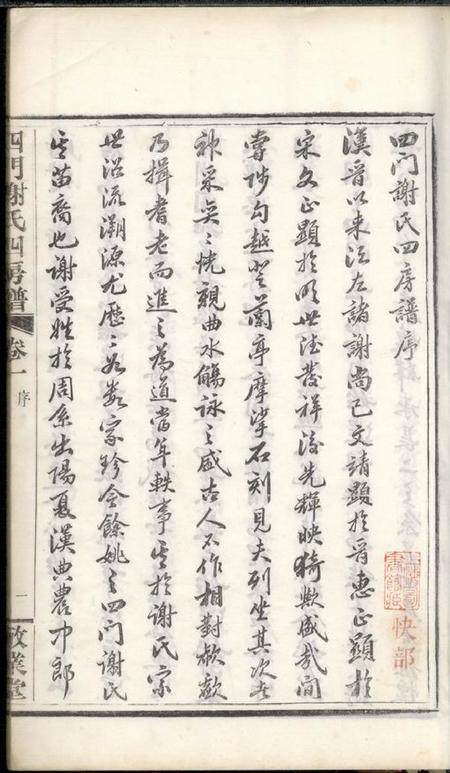 四门謝氏四房譜序
漢晉以来江左諸謝尚已文靖顯於晉惠正顯於
宋文正顯於明世德發祥後先輝映猗歟盛哉間
嘗涉勾越登蘭亭摩挲石刻見夫列坐其次者
神采奕奕恍親曲水觴詠之盛古人不作相對欷歔
乃揖耆老而進之為道當年軼事其於謝氏宗
世沿流溯源尤歷歷如數家珍今餘姚之四门謝氏
其苗裔也謝受姓於周系出陽夏漢典農中郎
四門謝氏四房譜 卷一 序 一
快部